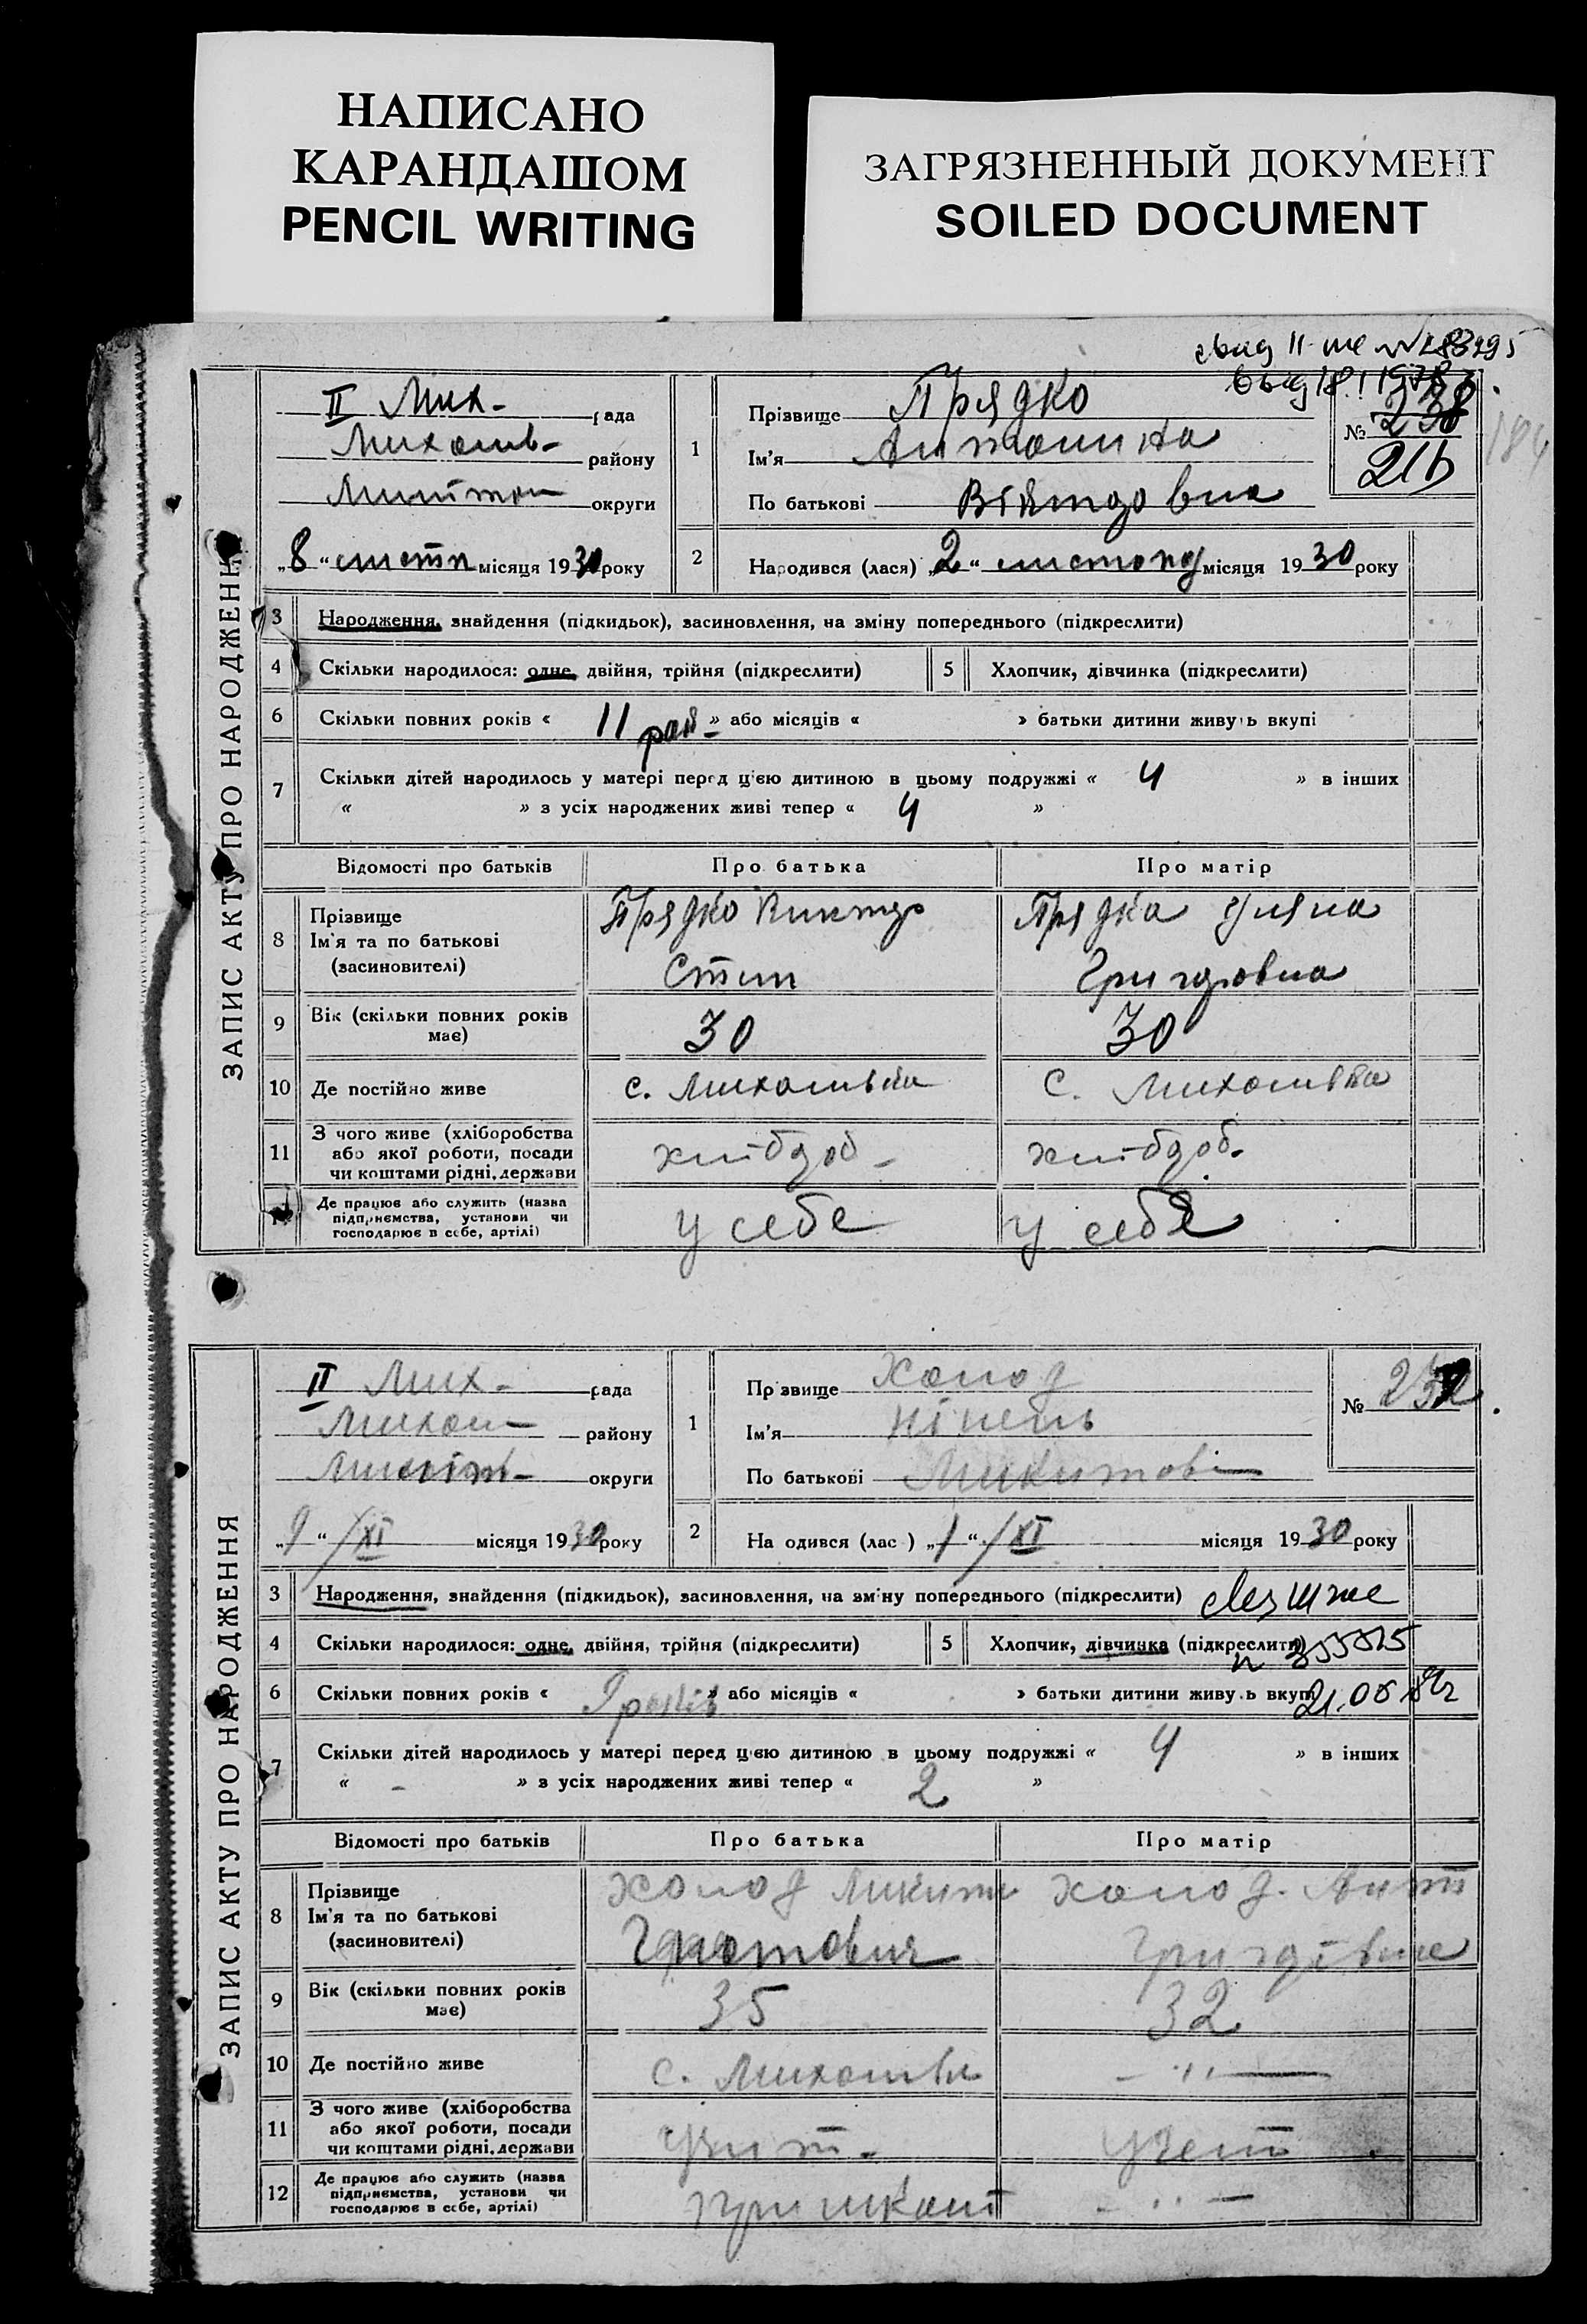 НАПИСАНО
КАРАНДАШОМ
PENCIL WRITING
ЗАГРЯЗНЕННЫЙ ДОКУМЕНТ
SOILED DOCUMENT
ЗАПИС АКТУ ПРО НАРОДЖЕННЯ
II Мих- рада
району
округи
1
Прізвище Прядко
Ім'я Антонина
По батькові
№ 238
216
184
„8“ листп місяця 1930 року
2
Народився (лася) „2“ листопад місяця 1930 року
3 Народження, знайдення (підкидьок), засиновлення, на зміну попереднього (підкреслити)
4 Скільки народилося: одне, двійня, трійня (підкреслити) 5 Хлопчик, дівчинка (підкреслити)
6 Скільки повних років « 11 » або місяців « » батьки дитини живуть вкупі
7 Скільки дітей народилось у матері перед цією дитиною в цьому подружжі « 4 » в інших
« » з усіх народжених живі тепер « 4 »
Відомості про батьків Про батька Про матір
8 Прізвище
Ім'я та по батькові
(засиновителі)
Прядко Виктор
Степ
Прядка Уляна
Григоровна
9 Вік (скільки повних років має) 30 30
10 Де постійно живе с. Михайлівка С. Михайлівка
11 З чого живе (хліборобства
або якої роботи, посади
чи коштами рідні, держави
хлібороб- хлібороб.
Де працює або служить (назва
підприємства, установи чи
господарює в себе, артілі)
у себе у себе
ЗАПИС АКТУ ПРО НАРОДЖЕННЯ
II Мих- рада
району
округи
1
Прізвище Холод
Ім'я Нінель
По батькові Микитовн
№
„9“ /XI місяця 1930 року
2
Народився (лас ) „1“ /XI місяця 1930 року
3 Народження, знайдення (підкидьок), засиновлення, на зміну попереднього (підкреслити)
4 Скільки народилося: одне, двійня, трійня (підкреслити) 5 Хлопчик, дівчинка (підкреслити)
6 Скільки повних років « 9 років » або місяців « » батьки дитини живуть вкупі
7 Скільки дітей народилось у матері перед цією дитиною в цьому подружжі « 4 » в інших
« - » з усіх народжених живі тепер « 2 »
Відомості про батьків Про батька Про матір
8 Прізвище
Ім'я та по батькові
(засиновителі)
Холод Микита
Холод. Ант
Григорівна
9 Вік (скільки повних років має) 35 32
10 Де постійно живе с. Михайлівк - " -
11 З чого живе (хліборобства
або якої роботи, посади
чи коштами рідні, держави
учит- учит
12 Де працює або служить (назва
підприємства, установи чи
господарює в себе, артілі)
при школі - " -